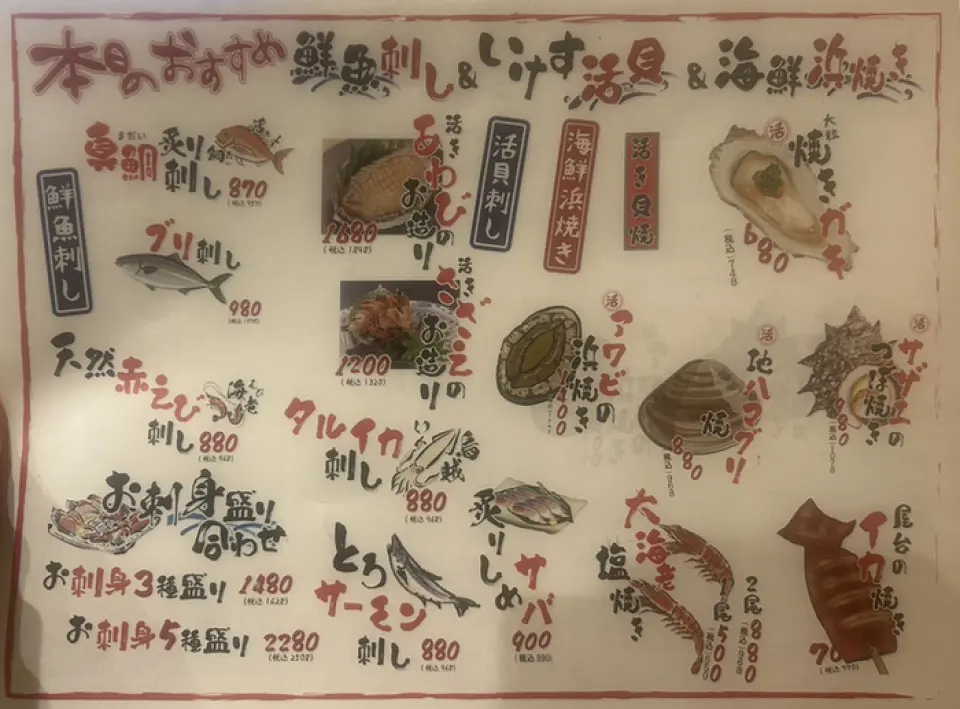 本日のおすすめ 鮮魚刺し&いけす活貝&海鮮浜焼き
鮮魚刺し
まだい
真鯛 炙り刺し
870
ブリ刺し
980
天然赤えび刺し
海老
えび
880
(税込968)
お刺身盛り合わせ
お刺身3種盛り 1480
(税込1628)
お刺身5種盛り 2280
(税込2508)
活きあわびのお造り
1680
(税込1848)
活きさざえのお造り
1200
(税込1320)
タルイカ刺し
いか
880
(税込968)
とろサーモン刺し
880
(税込968)
活貝刺し
海鮮浜焼き
活き貝焼
大粒焼きガキ
活
680
(税込748)
活
アワビの浜焼き
1400
活
地ハマグリ焼
880
(税込968)
活
サザエのつぼ焼き
980
(税込1078)
炙りしめサバ
900
大海老塩焼き
2尾880
(税込968)
1尾500
(税込550)
屋台のイカ焼き